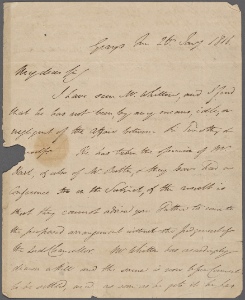 Grays Inn 26 Jany 1816
My dear Sir
I have seen Mr. Whitton, and I find
that he has not been by any means idle, or
negligent of the affair between Sir Timothy, &
He has taken the opinion of Mr.
Hart, & also of Mr. and they have had a
conference on the Subject, & the result is
that they cannot advise Sir to come to
the proposed arrangement without the Judgment of
the Lord Chancellor. Mr Whitton has accordingly
drawn a bill and the same is now before Counsel
to be settled, and as soon as he gets it he has